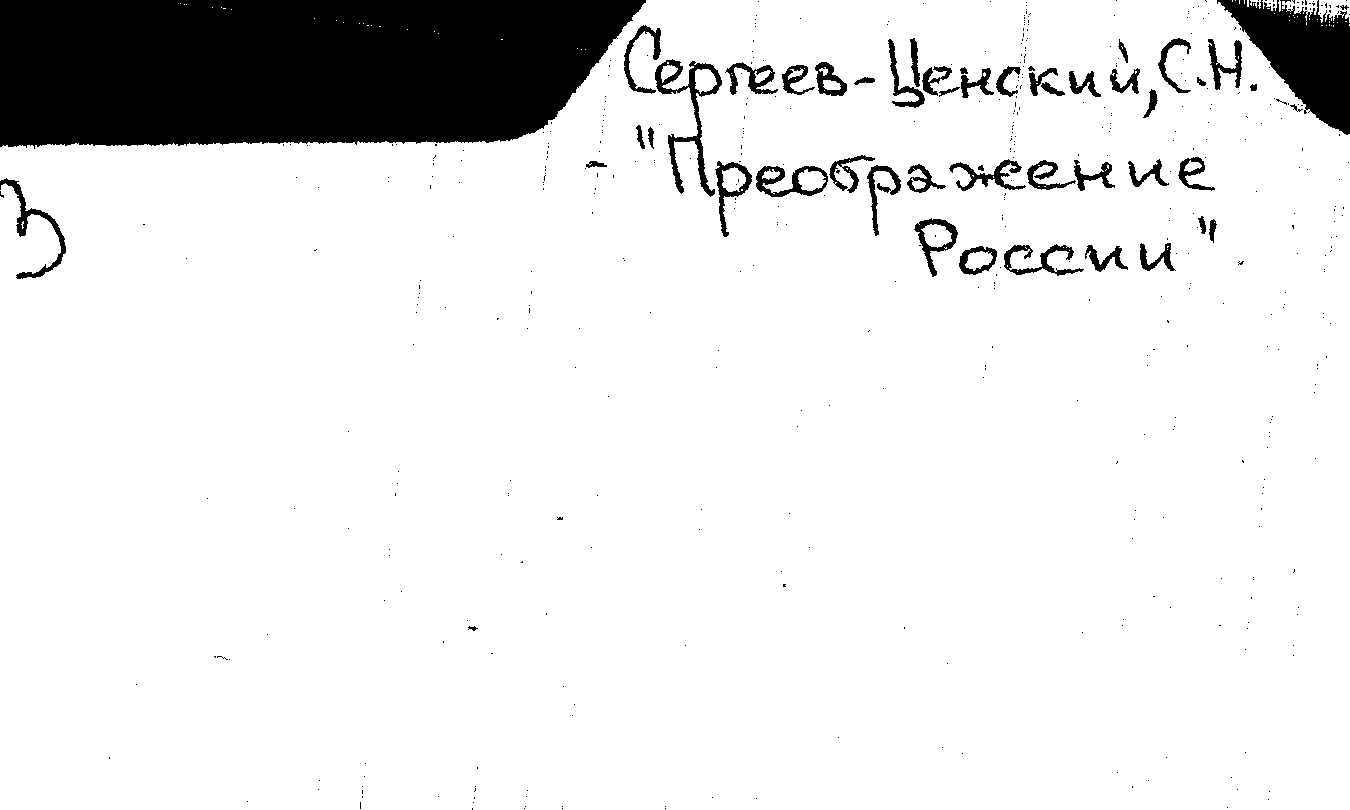 Сергеев-Ценский, С.Н.
- "Преображение
России".